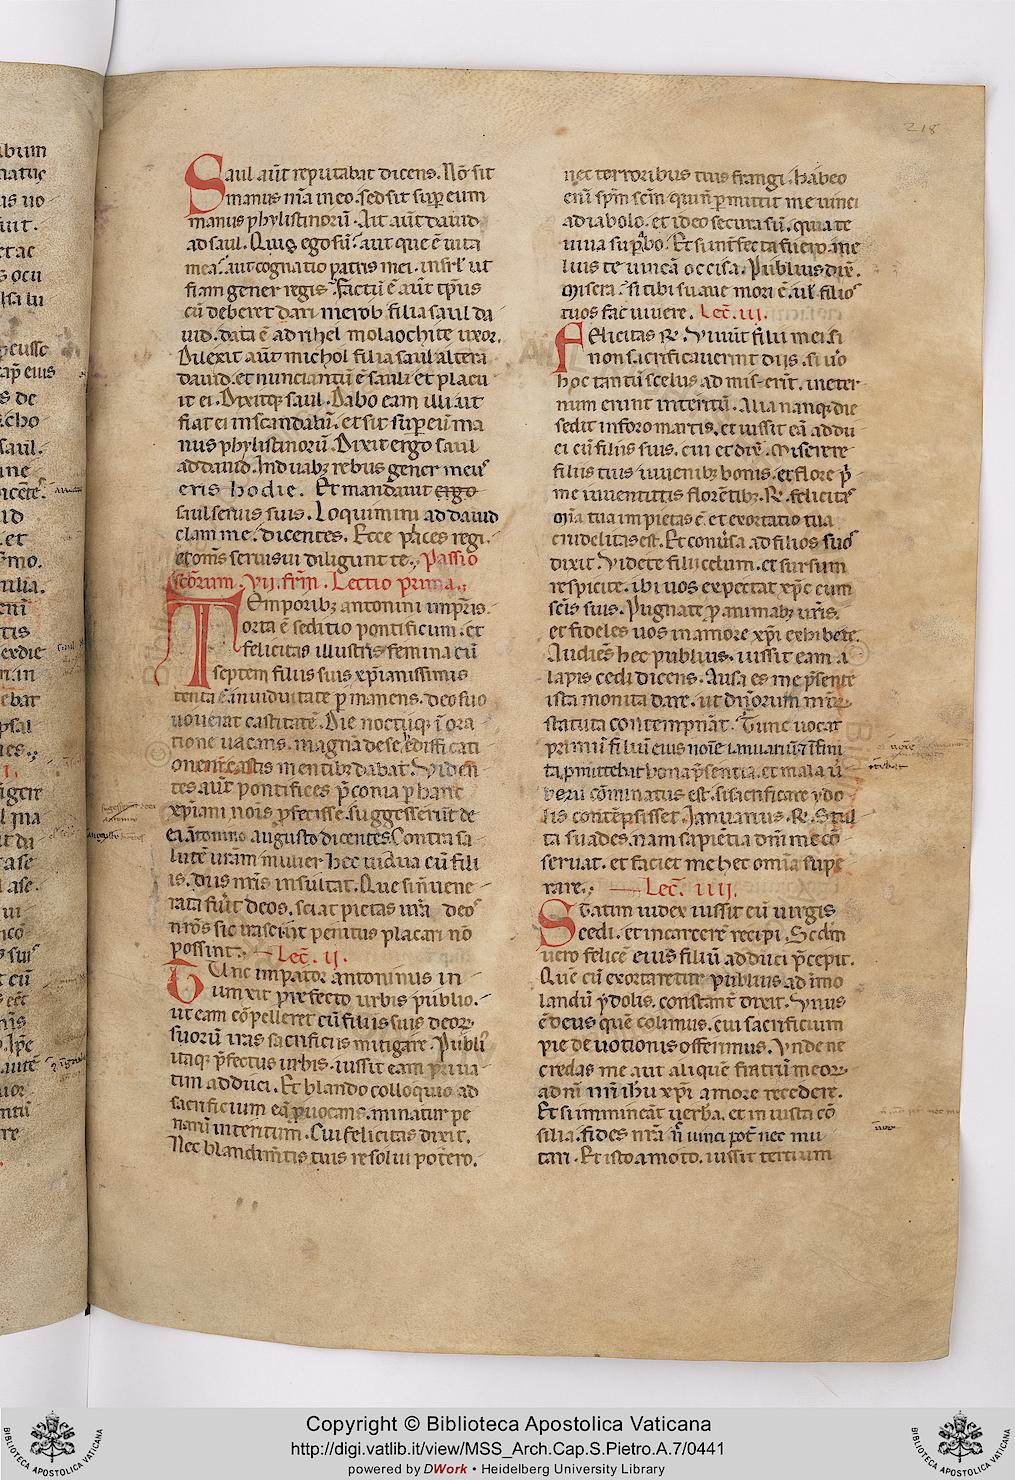 218
Saul aut̄ reputabat dicens. Nō sit
manus m̄a in eo. sed sit sup̱ eum
manus phylistinorū. Ait aut̄ dauid
ad saul. Quis ego sū? aut que ē uita
mea? aut cognatio patris mei. in isrl̄ ut
fiam gener regis? Factū ē aut̄ tp̄us
cū deberet dari merob filia saul da
uid. data ē adrihel molaochite uxor.
Dilexit aut̄ michol filia saul altera
dauid. et nunciantū ē sauli et placu
it ei. Dixitq; saul. Dabo eam illi ut
fiat ei inscandalū. et sit sup̱ eū ma
nus phylistinorū. Dixit ergo saul
ad dauid. In duab; rebus gener meus
eris hodie. Et mandauit ergo
saul seruis suis. Loquimini ad dauid
clam me. dicentes. Ecce places regi.
et om̄s serui sui diligunt te. Passio
sc̄orum .vii. fr̄m. Lectio prima.
Temporib; antonini imp̱ris.
orta ē seditio pontificum. et
felicitas illustris femina cū
septem filiis suis xp̄ianissimis
tenta ē. in uiduitate p̱manens. deo suo
uouerat castitatē. Die noctuq; ī ora
tione uacans. magnā de se edifficati
onem castis mentib; dabat. Viden
tes aut̄ pontifices p̄conia p̱ hanc
xp̄iani nōis p̱fecisse. suggesserūt de
ea antonino augusto dicentes Contra sa
lutē ur̄am mulier hec uidua cū fili
is. diis nr̄is insultat. Que si n̄ uene
rata fūit deos. sciat pietas ur̄a deos
nr̄os sic irasci. ut penitus placari nō
possint. Lec̄. ii.
Tunc imp̱ator antoninus in
iunxit prefecto urbis publio.
ut eam cōpelleret cū filiis suis deor̄
suorū iras sacrificiis mitigare. Publi
us itaq; p̄fectus urbis. iussit eam priua
tim adduci. Et blando colloquio ad
sacrificium eā p̱uocans. minatur pe
narū intentum. Cui felicitas dixit.
Nec blandim̄tis tuis resolui potero.
nec terroribus tuis frangi. Habeo
enī sp̄m sc̄m qui n̄ p̱mittit me uinci
a diabolo. et ideo secura sū. quia te
uiua sup̱abo. Et si int̄fecta fuero. me
lius te uincā occisa. Publius dix̄.
Misera. si tibi suaue mori ē. uł filios
tuos fac uiuere. Lec̄. iii.
Felicitas R̄. Viuūt filii mei. si
non sacrificauerint diis. si u̅o
hoc tantū scelus admiserīt. in eter
num erunt interitū. Alia nanq; die
sedit in foro martis. et iussit eā addu
ci cū filiis suis. cui et dix̄. Miserere
filiis tuis iuuenib; bonis. et flore p̱
me iuuentutis florētib;. R̄. felicitas
Mīa tua impietas ē. et exortatio tua
crudelitas est. Et conūsa ad filios suos
dixit. Videte filii celum. et sursum
respicite. ibi uos expectat xp̄c cum
sc̄is suis. Pugnate p̱ animab; ur̄is.
et fideles uos in amore xp̄i exhibete.
Audiēs hec publius. iussit eam a
lapis cedi dicens. Ausa es me p̄sente
ista monita dare. ut dn̄orum nr̄or̄
statuta contempnāt. Tunc uocat
primū filiū eius noīe ianuariū. ⁊ īfini
ta p̱mittebat bona p̄sentia. et mala ū
berū cōminatus est. si sacrificare ydo
lis contēpsisset. Januarius. R̄. Stul
ta suades. nam sapiētia dn̄i me cō
seruat. et faciet me hec omīa supe
rare. Lec̄. iiii.
Statim iudex iussit eū uirgis
cedi. et in carcere recipi. Secdm̄
uero felicē eius filiū adduci p̄cepit.
Quē cū exortaretur publius ad īmo
landū ydolis. constanter dixit. Vnus
ē deus quē colimus. cui sacrificium
pie deuotionis offerimus. Vnde ne
credas me aut aliquē fratrū meor̄.
a dn̄i nr̄i ihu xp̄i amore recedere.
Et si immineāt uerba. et iniusta cō
silia. fides nr̄a n̄ uinci pot̄. nec mu
tari. Et isto amoto. iussit tertium
Copyright © Biblioteca Apostolica Vaticana
http://digi.vatlib.it/view/MSS_Arch.Cap.S.Pietro.A.7/0441
powered by DWork • Heidelberg University Library
BIBLIOTECA APOSTOLICA VATICANA
BIBLIOTECA APOSTOLICA VATICANA